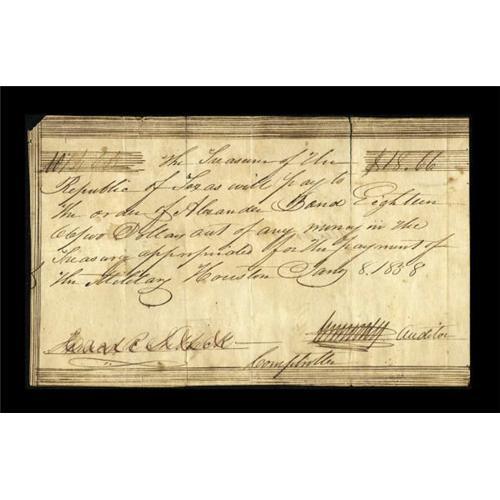 The Treasurer of the $18.66
Republic of Texas will pay to
the order of Alexander Bond Eighteen
66/100 Dollars out of any money in the
Treasure appropriated for the payment of
the Military Houston Jany 8. 1838
Auditor
Comptroller